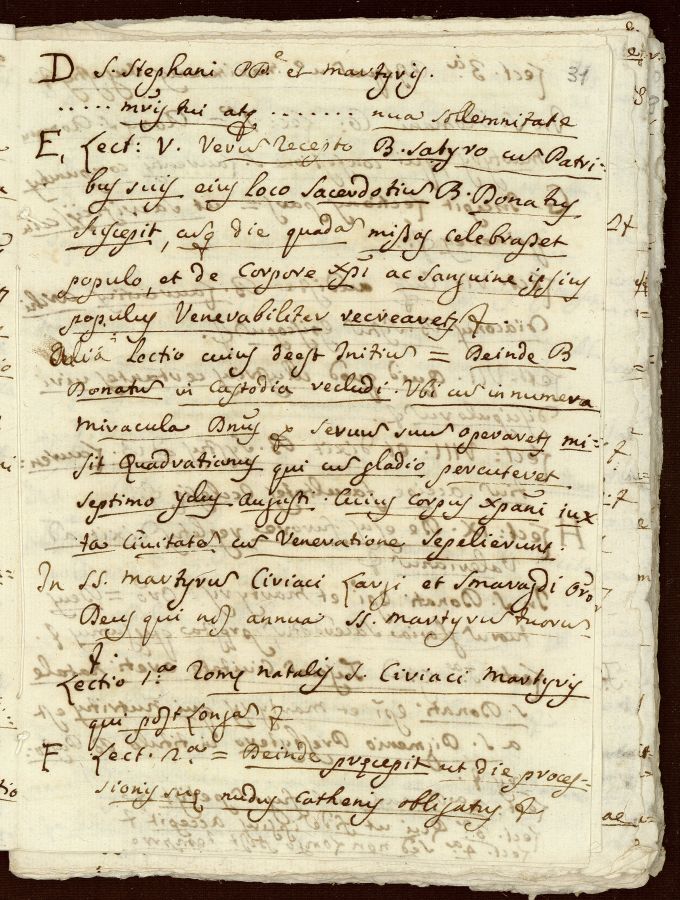 D S. Stephani PP.e et martyris.
31
..... mris tui atq ........ nua sollemnitate
E, Lect: V. Verus recepto B. satyro cus Patri-
bus suis eius loco sacerdotius B. Donatus
suscepit, cusq die quada missas celebrasset
populo, et de Corpore xpi ac sanguine ipsius
populus Venerabiliter recrearetz &.
Alia Lectio cuius deest Initius = Deinde B
Donatus in Custodia recludi. Ubi cus innumera
miracula Dnus p servus suus operaretz mi-
sit Quadrationus qui cus gladio percuteret
septimo ydus Augusti. Cuius Corpus xpani iux
ta Civitate cus Veneratione sepelierunt.
In SS. Martyrus Ciriaci Largi et Smaragdi Oro
Deus qui nos annua SS. Martyrus tuorus
&.
Lectio 1.a Rome natalis S. Ciriaci Martyris
qui post Longas &
F Lect. 2.a = Deinde precepit ut die proces-
sionis sue nudus Cathenis obligatus &.